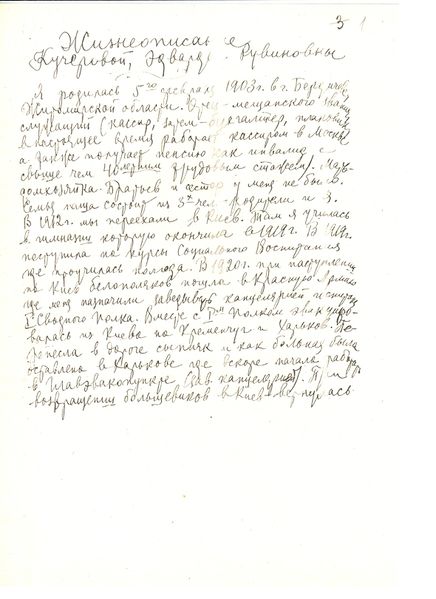 3 1
Жизнеописание
Кучеровой, Эдварды Рувиновны
Я родилась 5го февраля 1903 г. в г. Бердичев
Житомирской области. Отец - мещанского звания
служащий (кассир, зам. бухгалтер, плановик
в настоящее время работает кассиром в Москве
а также получает пенсию как инвалид с
свыше чем 40 летним трудовым стажем). Мать
домохозяйка. Братьев и сестер у меня не было.
Семья наша состоит из 3х чел. Родители и я.
В 1912 г. мы переехали в Киев. Там я училась
в гимназии которую окончила в 1919 г. В 1919 г.
поступила на курсы Социального Воспитания
где проучилась полгода. В 1920 г. при наступлении
на Киев белополяков пошла в Красную Армию
где меня назначили заведывать канцелярией
I Сводного Полка. Вместе с Iым Полком эвакуиро-
валась из Киева на Кременчуг и Харьков. Пе-
ренесла в дороге сыпняк и как больная была
оставлена в Харькове где вскоре начала работ.
в Главэвакопункте (зав. канцелярией). При
возвращении большевиков в Киев - вернулась